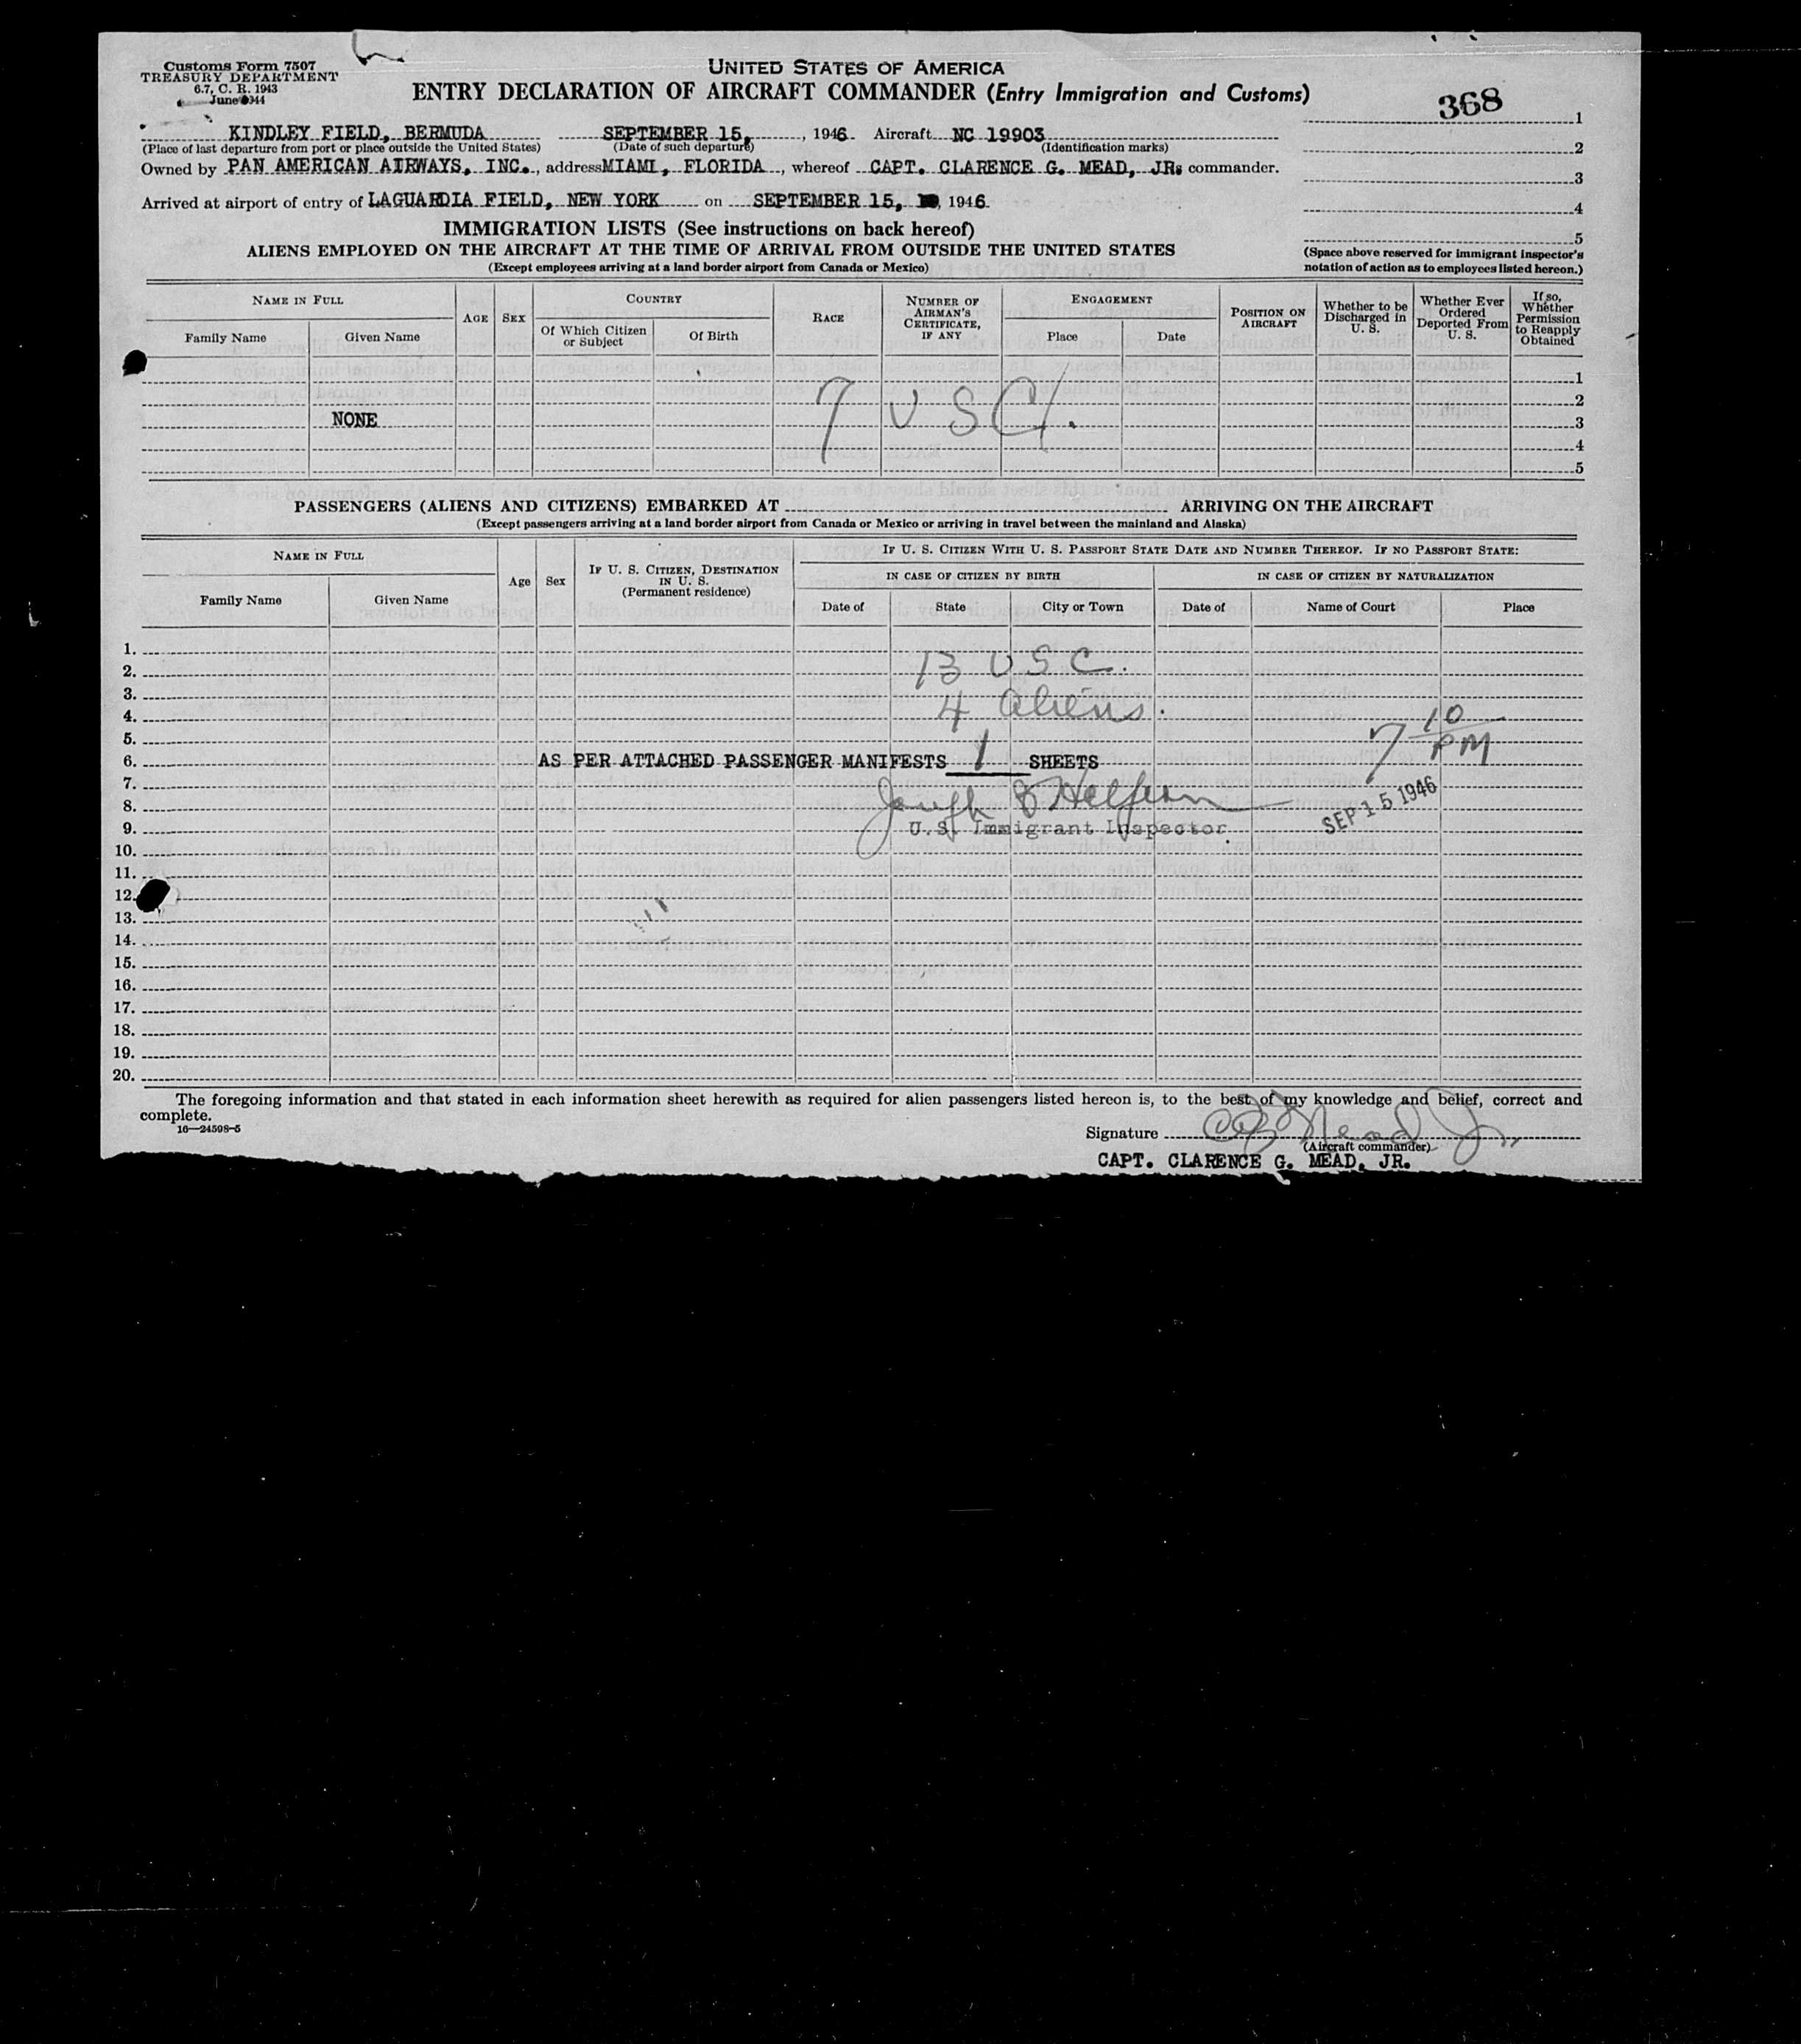 Customs Form 7507
TREASURY DEPARTMENT
6.7, C. R. 1943
June 1944
UNITED STATES OF AMERICA
ENTRY DECLARATION OF AIRCRAFT COMMANDER (Entry Immigration and Customs)
368
1
2
3
4
5
(Space above reserved for immigrant inspector's
notation of action as to employees listed hereon.)
KINDLEY FIELD, BERMUDA SEPTEMBER 15, , 1946. Aircraft NC 19903
(Place of last departure from port or place outside the United States) (Date of such departure) (Identification marks)
Owned by PAN AMERICAN AIRWAYS, INC., address MIAMI, FLORIDA, whereof CAPT. CLARENCE G. MEAD, JR. commander.
Arrived at airport of entry of LAGUARDIA FIELD, NEW YORK on SEPTEMBER 15, , 1946.
IMMIGRATION LISTS (See instructions on back hereof)
ALIENS EMPLOYED ON THE AIRCRAFT AT THE TIME OF ARRIVAL FROM OUTSIDE THE UNITED STATES
(Except employees arriving at a land border airport from Canada or Mexico)
NAME IN FULL
Family Name
Given Name
AGE
SEX
COUNTRY
Of Which Citizen or Subject
Of Birth
RACE
NUMBER OF AIRMAN'S CERTIFICATE, IF ANY
ENGAGEMENT
Place
Date
POSITION ON AIRCRAFT
Whether to be Discharged in U. S.
Whether Ever Ordered Deported From U. S.
If so, Whether Permission to Reapply Obtained
1
2
NONE 7 USC. 3
4
5
PASSENGERS (ALIENS AND CITIZENS) EMBARKED AT ARRIVING ON THE AIRCRAFT
(Except passengers arriving at a land border airport from Canada or Mexico or arriving in travel between the mainland and Alaska)
NAME IN FULL
Family Name
Given Name
Age
Sex
IF U. S. CITIZEN, DESTINATION IN U. S.
(Permanent residence)
IF U. S. CITIZEN WITH U. S. PASSPORT STATE DATE AND NUMBER THEREOF. IF NO PASSPORT STATE:
IN CASE OF CITIZEN BY BIRTH
IN CASE OF CITIZEN BY NATURALIZATION
Date of
State
City or Town
Date of
Name of Court
Place
1.
2. 13 USC.
3.
4. 4 aliens.
5. 7 10 PM
6. AS PER ATTACHED PASSENGER MANIFESTS 1 SHEETS
7.
8. SEP 15 1946
9. U.S. Immigrant Inspector
10.
11.
12.
13.
14.
15.
16.
17.
18.
19.
20.
The foregoing information and that stated in each information sheet herewith as required for alien passengers listed hereon is, to the best of my knowledge and belief, correct and
complete.
16—24598-5
Signature CG Mead Jr.
(Aircraft commander)
CAPT. CLARENCE G. MEAD, JR.